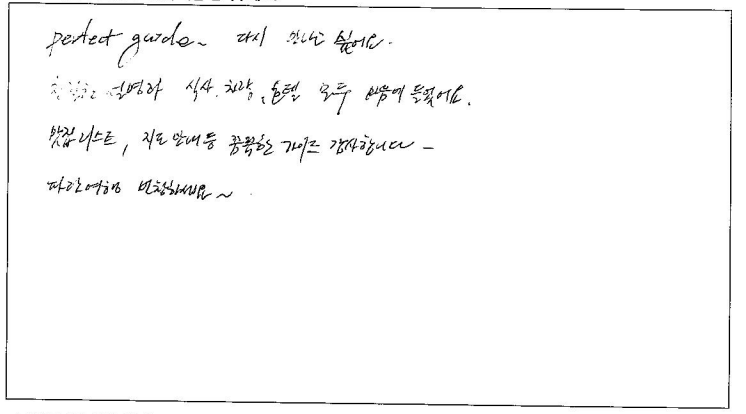 perfect guide~ 다시 만나고 싶어요.
친절한 설명과 식사, 차량, 호텔 모두 마음에 들었어요.
맛집리스트, 지도 안내 등 꼼꼼한 가이드 감사합니다 -
파란여행 번창하세요~